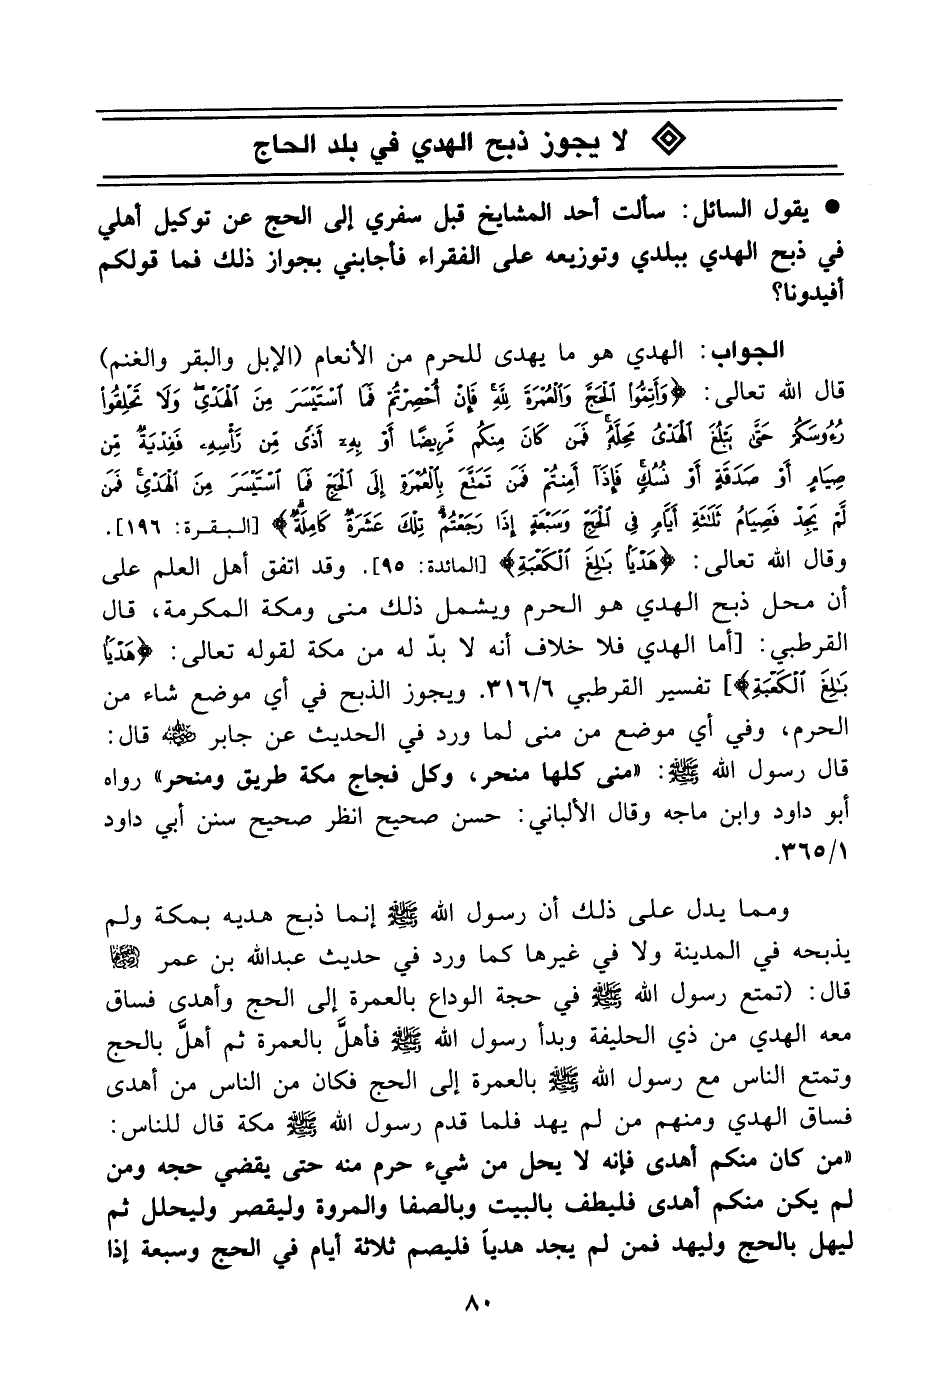 لا يجوز ذبح الهدي في بلد الحاج
● يقول السائل: سألت أحد المشايخ قبل سفري إلى الحج عن توكيل أهلي
في ذبح الهدي ببلدي وتوزيعه على الفقراء فأجابني بجواز ذلك فما قولكم
أفيدونا؟
الجواب: الهدي هو ما يهدى للحرم من الأنعام (الإبل والبقر والغنم)
قال الله تعالى: ﴿وَأَتِمُّوا۟ ٱلْحَجَّ وَٱلْعُمْرَةَ لِلَّهِ ۚ فَإِنْ أُحْصِرْتُمْ فَمَا ٱسْتَيْسَرَ مِنَ ٱلْهَدْىِ ۖ وَلَا تَحْلِقُوا۟
رُءُوسَكُمْ حَتَّىٰ يَبْلُغَ ٱلْهَدْىُ مَحِلَّهُۥ ۚ فَمَن كَانَ مِنكُم مَّرِيضًا أَوْ بِهِۦٓ أَذًى مِّن رَّأْسِهِۦ فَفِدْيَةٌ مِّن
صِيَامٍ أَوْ صَدَقَةٍ أَوْ نُسُكٍ ۚ فَإِذَآ أَمِنتُمْ فَمَن تَمَتَّعَ بِٱلْعُمْرَةِ إِلَى ٱلْحَجِّ فَمَا ٱسْتَيْسَرَ مِنَ ٱلْهَدْىِ ۚ فَمَن
لَّمْ يَجِدْ فَصِيَامُ ثَلَـٰثَةِ أَيَّامٍ فِى ٱلْحَجِّ وَسَبْعَةٍ إِذَا رَجَعْتُمْ ۗ تِلْكَ عَشَرَةٌ كَامِلَةٌ ۗ﴾ [البقرة: ١٩٦].
وقال الله تعالى: ﴿هَدْيًۢا بَـٰلِغَ ٱلْكَعْبَةِ﴾ [المائدة: ٩٥]. وقد اتفق أهل العلم على
أن محل ذبح الهدي هو الحرم ويشمل ذلك منى ومكة المكرمة، قال
القرطبي: [أما الهدي فلا خلاف أنه لا بدّ له من مكة لقوله تعالى: ﴿هَدْيًۢا
بَـٰلِغَ ٱلْكَعْبَةِ﴾] تفسير القرطبي ٣١٦/٦. ويجوز الذبح في أي موضع شاء من
الحرم، وفي أي موضع من منى لما ورد في الحديث عن جابر رضي الله عنه قال:
قال رسول الله ﷺ: «منى كلها منحر، وكل فجاج مكة طريق ومنحر» رواه
أبو داود وابن ماجه وقال الألباني: حسن صحيح انظر صحيح سنن أبي داود
٣٦٥/١.
ومما يدل على ذلك أن رسول الله ﷺ إنما ذبح هديه بمكة ولم
يذبحه في المدينة ولا في غيرها كما ورد في حديث عبدالله بن عمر رضي الله عنهما
قال: (تمتع رسول الله ﷺ في حجة الوداع بالعمرة إلى الحج وأهدى فساق
معه الهدي من ذي الحليفة وبدأ رسول الله ﷺ فأهلَّ بالعمرة ثم أهلَّ بالحج
وتمتع الناس مع رسول الله ﷺ بالعمرة إلى الحج فكان من الناس من أهدى
فساق الهدي ومنهم من لم يهد فلما قدم رسول الله ﷺ مكة قال للناس:
«من كان منكم أهدى فإنه لا يحل من شيء حرم منه حتى يقضي حجه ومن
لم يكن منكم أهدى فليطف بالبيت وبالصفا والمروة وليقصر وليحلل ثم
ليهل بالحج وليهد فمن لم يجد هدياً فليصم ثلاثة أيام في الحج وسبعة إذا
٨٠